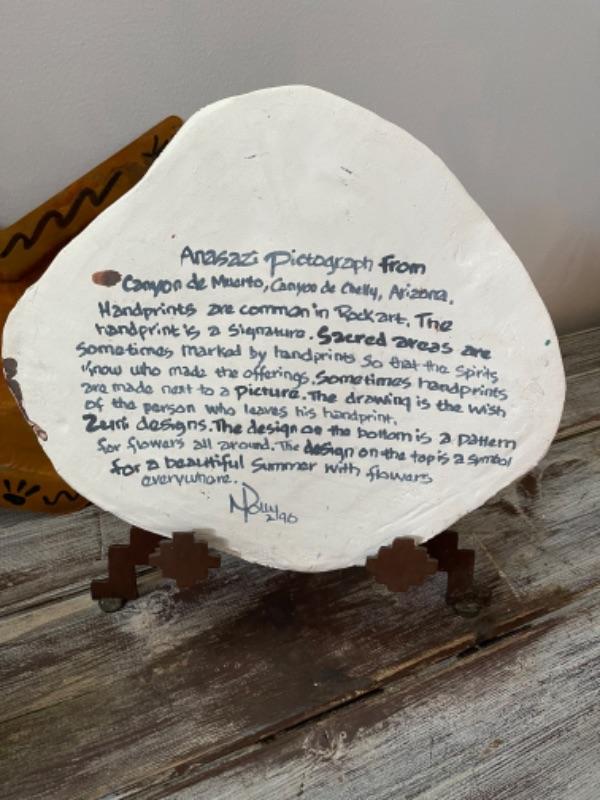 Anasazi Pictograph from
Canyon de Muerto, Canyon de Chelly, Arizona.
Handprints are common in Rock art. The
handprint is a Signature. Sacred areas are
sometimes marked by handprints so that the Spirits
know who made the offerings. Sometimes handprints
are made next to a Picture. The drawing is the wish
of the person who leaves his handprint.
Zuni designs. The design on the bottom is a pattern
for flowers all around. The design on the top is a symbol
for a beautiful Summer with flowers
everywhere.